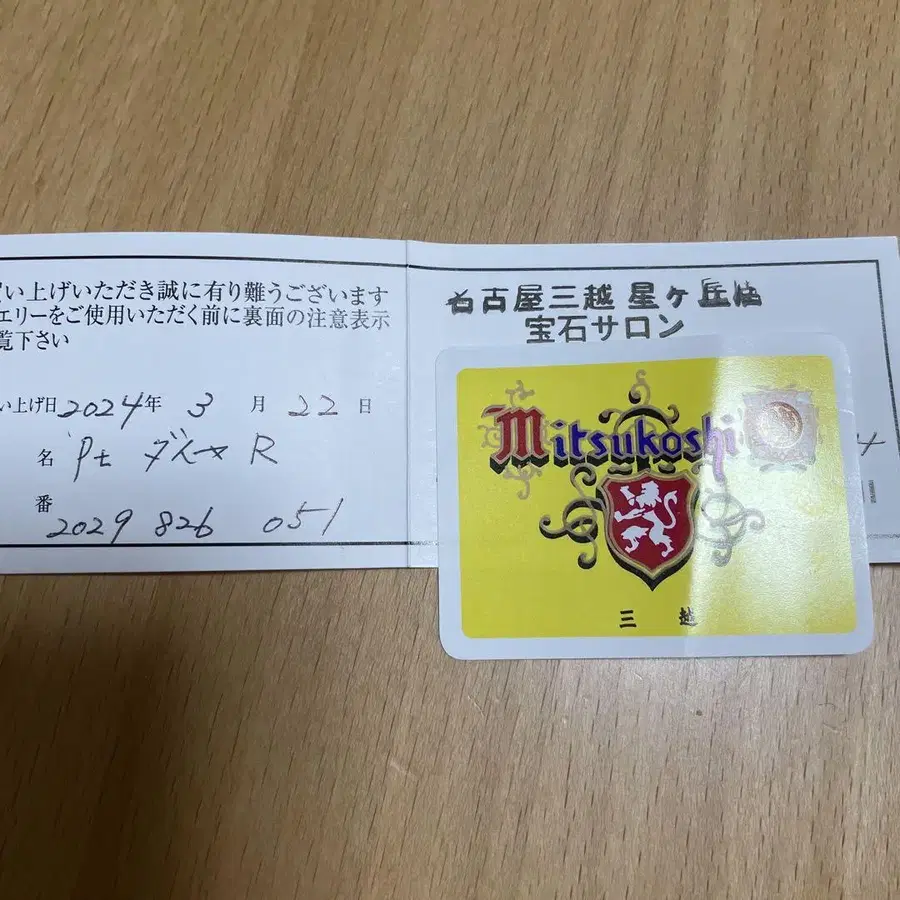 い上げいただき誠に有り難うございます
エリーをご使用いただく前に裏面の注意表示
覧下さい
い上げ日 2024年 3 月 22 日
名 Pt ダイヤ R
番
2029 826 051
名古屋三越 星ヶ丘店
宝石サロン
Mitsukoshi
三越
4